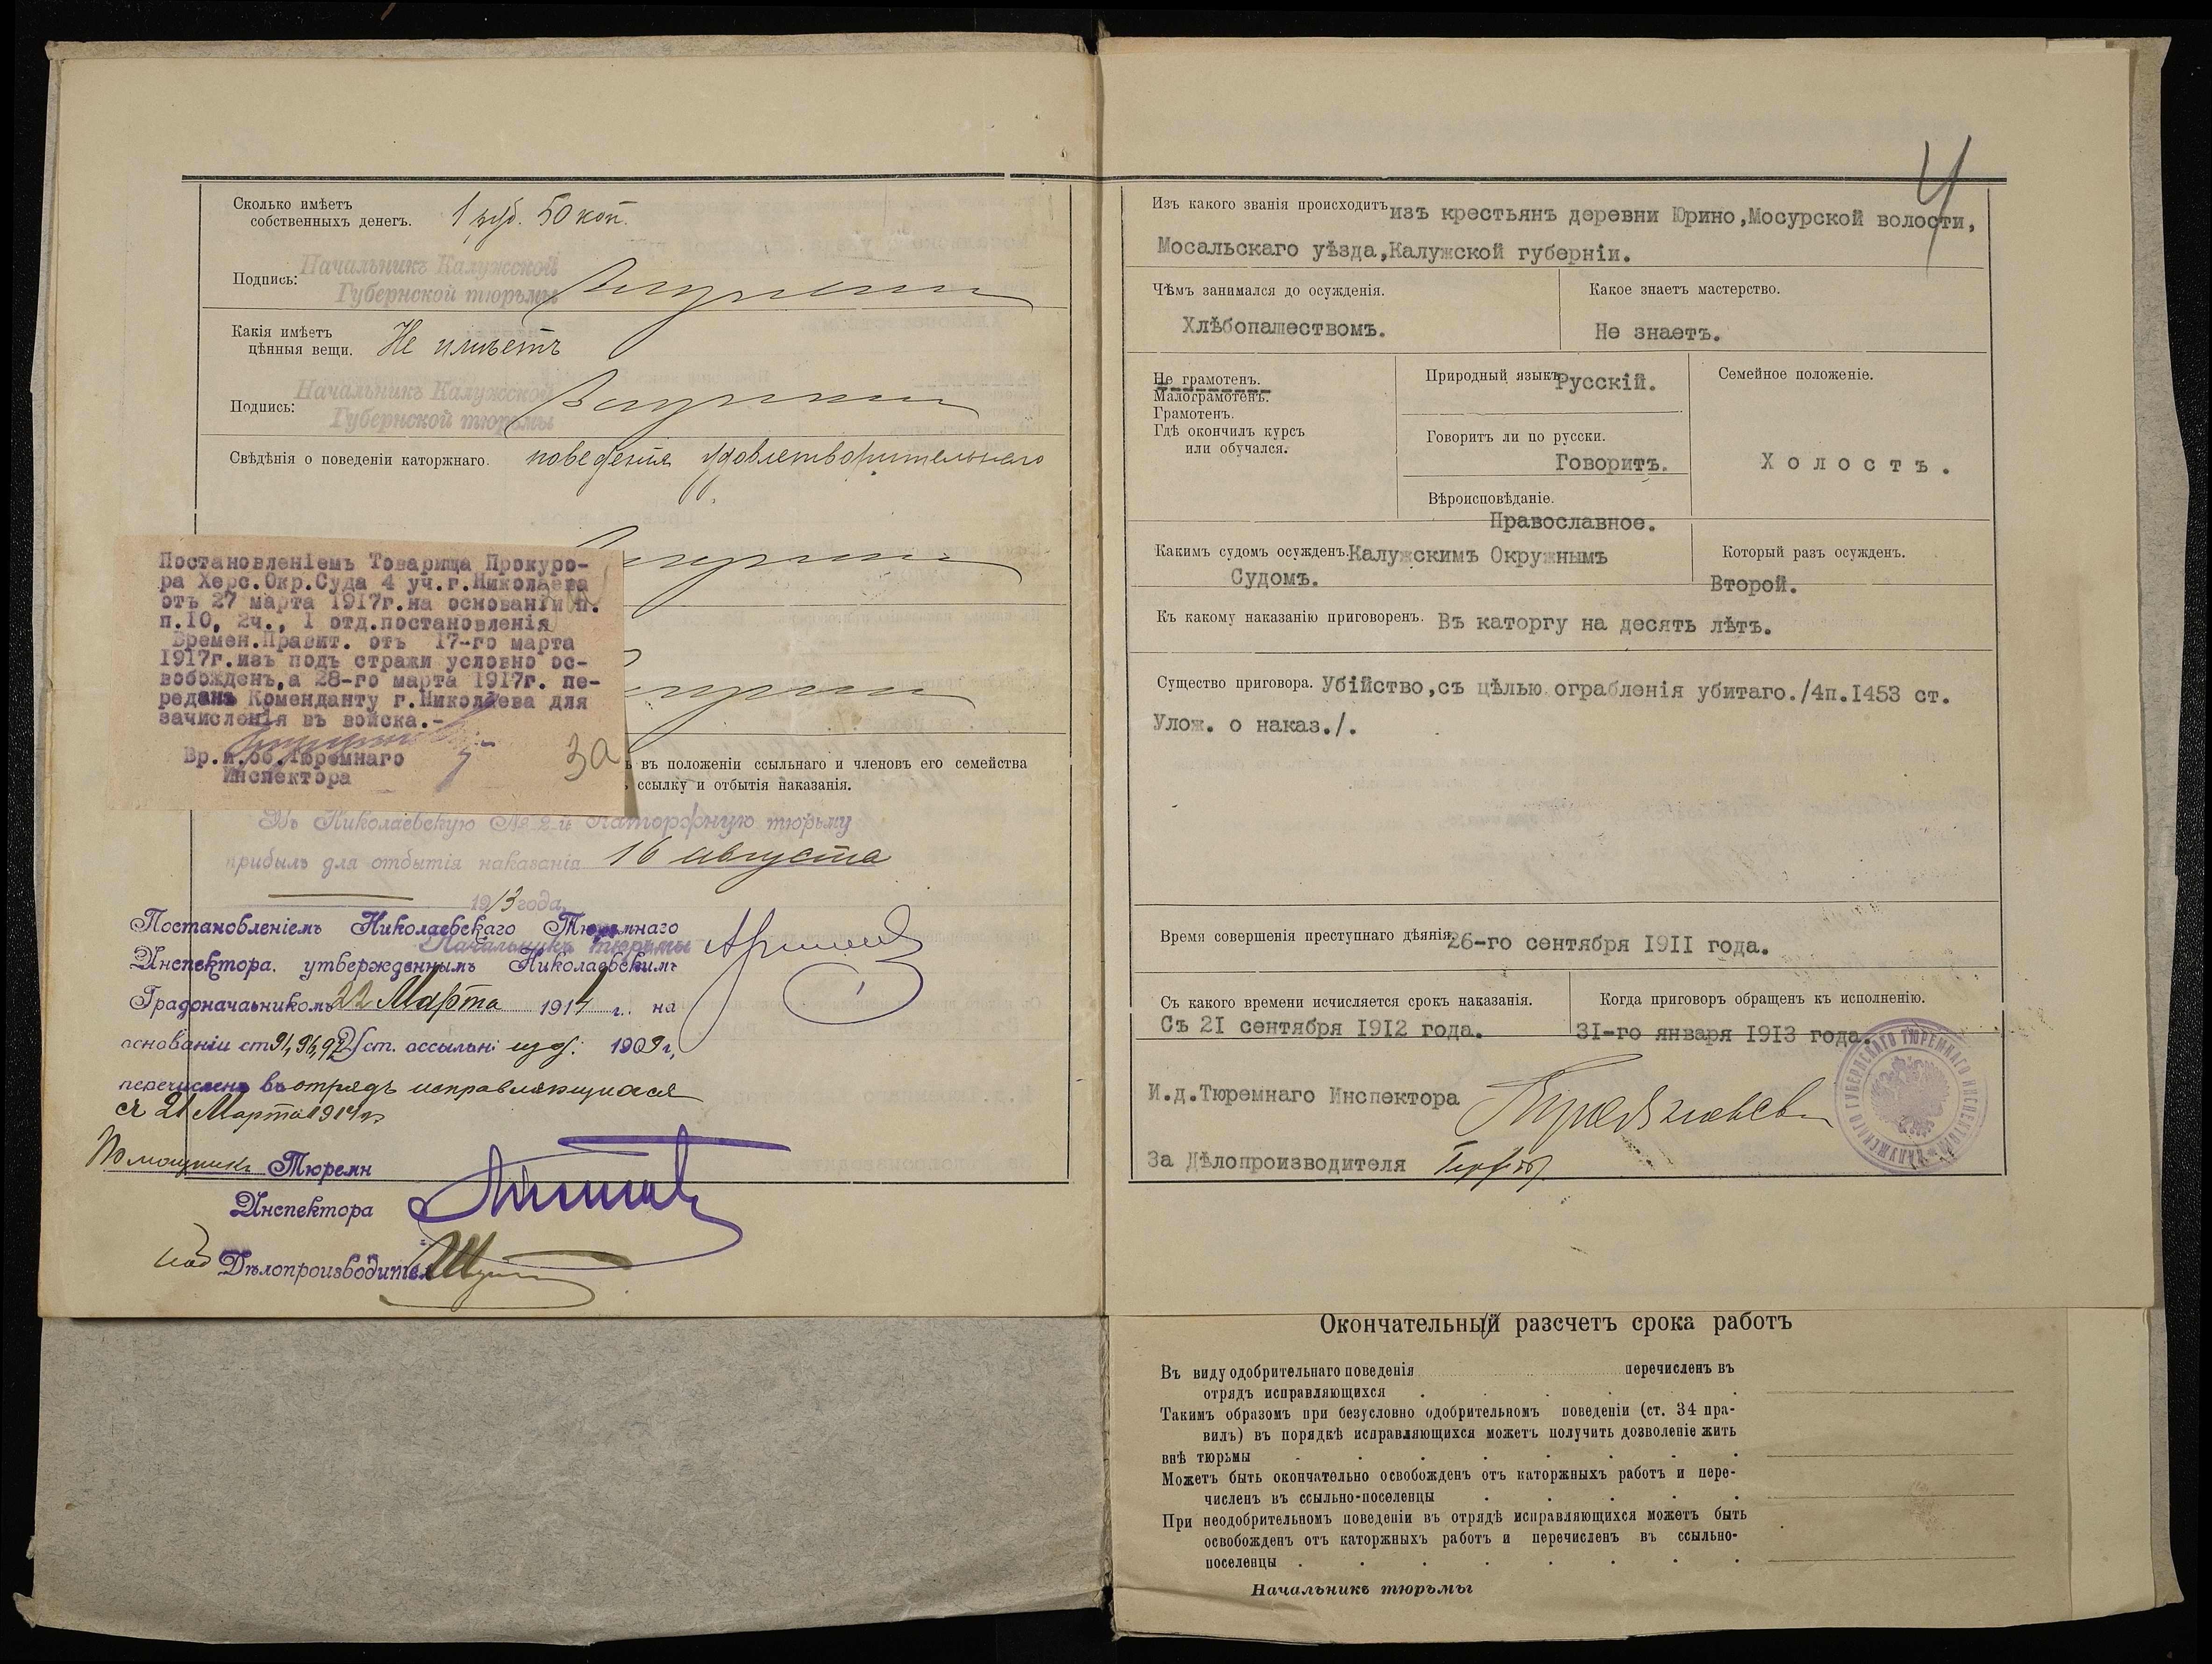 Сколько имѣетъ
собственныхъ денегъ. 1 руб. 50 коп.
Начальникъ Калужской
Подпись:
Губернской тюрьмы
Какія имѣетъ
цѣнныя вещи. Не имѣетъ
Начальникъ Калужской
Подпись:
Губернской тюрьмы
Свѣдѣнія о поведеніи каторжнаго. поведенія удовлетворительнаго
Постановленіемъ Товарища Прокуро-
ра Херс.Окр.Суда 4 уч.г.Николаева
отъ 27 марта 1917г.на основаніи п.
п.10, 2ч., I отд.постановленія
Времен.Правит. отъ 17-го марта
1917г.изъ подъ стражи условно ос-
вобожденъ,а 28-го марта 1917г. пе-
реданъ Коменданту г.Николаева для
зачисленія въ войска.-
Вр.и.об.Тюремнаго
Инспектора
3а
въ положеніи ссыльнаго и членовъ его семейства
ссылку и отбытія наказанія.
Въ Николаевскую № 2-й Каторжную тюрьму
прибылъ для отбытія наказанія 16 августа
1913 года.
Постановленіемъ Николаевскаго Тюремнаго
Начальникъ тюрьмы
Инспектора, утвержденнымъ Николаевскимъ
Градоначальникомъ 22 Марта 1914 г. на
основаніи ст. 91, 96, 97 ст. ссыльн: изд: 1909 г,
перечисленъ въ отрядъ исправляющихся
съ 21 Марта 1914 г.
Помощникъ Тюремн
Инспектора
Дѣлопроизводител
4
Изъ какого званія происходитъ изъ крестьянъ деревни Юрино,Мосурской волости,
Мосальскаго уѣзда,Калужской губерніи.
Чѣмъ занимался до осужденія.
Хлѣбопашествомъ.
Какое знаетъ мастерство.
Не знаетъ.
Не грамотенъ.
Малограмотенъ.
Грамотенъ.
Гдѣ окончилъ курсъ
или обучался.
Природный языкъ Русскій.
Говоритъ ли по русски.
Говоритъ.
Вѣроисповѣданіе.
Православное.
Семейное положеніе.
Холостъ.
Какимъ судомъ осужденъ. Калужскимъ Окружнымъ
Судомъ.
Который разъ осужденъ.
Второй.
Къ какому наказанію приговоренъ. Въ каторгу на десять лѣтъ.
Существо приговора. Убійство,съ цѣлью ограбленія убитаго./4п.1453 ст.
Улож. о наказ./.
Время совершенія преступнаго дѣянія. 26-го сентября 1911 года.
Съ какого времени исчисляется срокъ наказанія.
Съ 21 сентября 1912 года.
Когда приговоръ обращенъ къ исполненію.
31-го января 1913 года.
И.д.Тюремнаго Инспектора
За Дѣлопроизводителя
Окончательный разсчетъ срока работъ
Въ виду одобрительнаго поведенія перечисленъ въ
отрядъ исправляющихся
Такимъ образомъ при безусловно одобрительномъ поведеніи (ст. 34 пра-
вилъ) въ порядкѣ исправляющихся можетъ получить дозволеніе жить
внѣ тюрьмы
Можетъ быть окончательно освобожденъ отъ каторжныхъ работъ и пере-
численъ въ ссыльно-поселенцы
При неодобрительномъ поведеніи въ отрядѣ исправляющихся можетъ быть
освобожденъ отъ каторжныхъ работъ и перечисленъ въ ссыльно-
поселенцы
Начальникъ тюрьмы